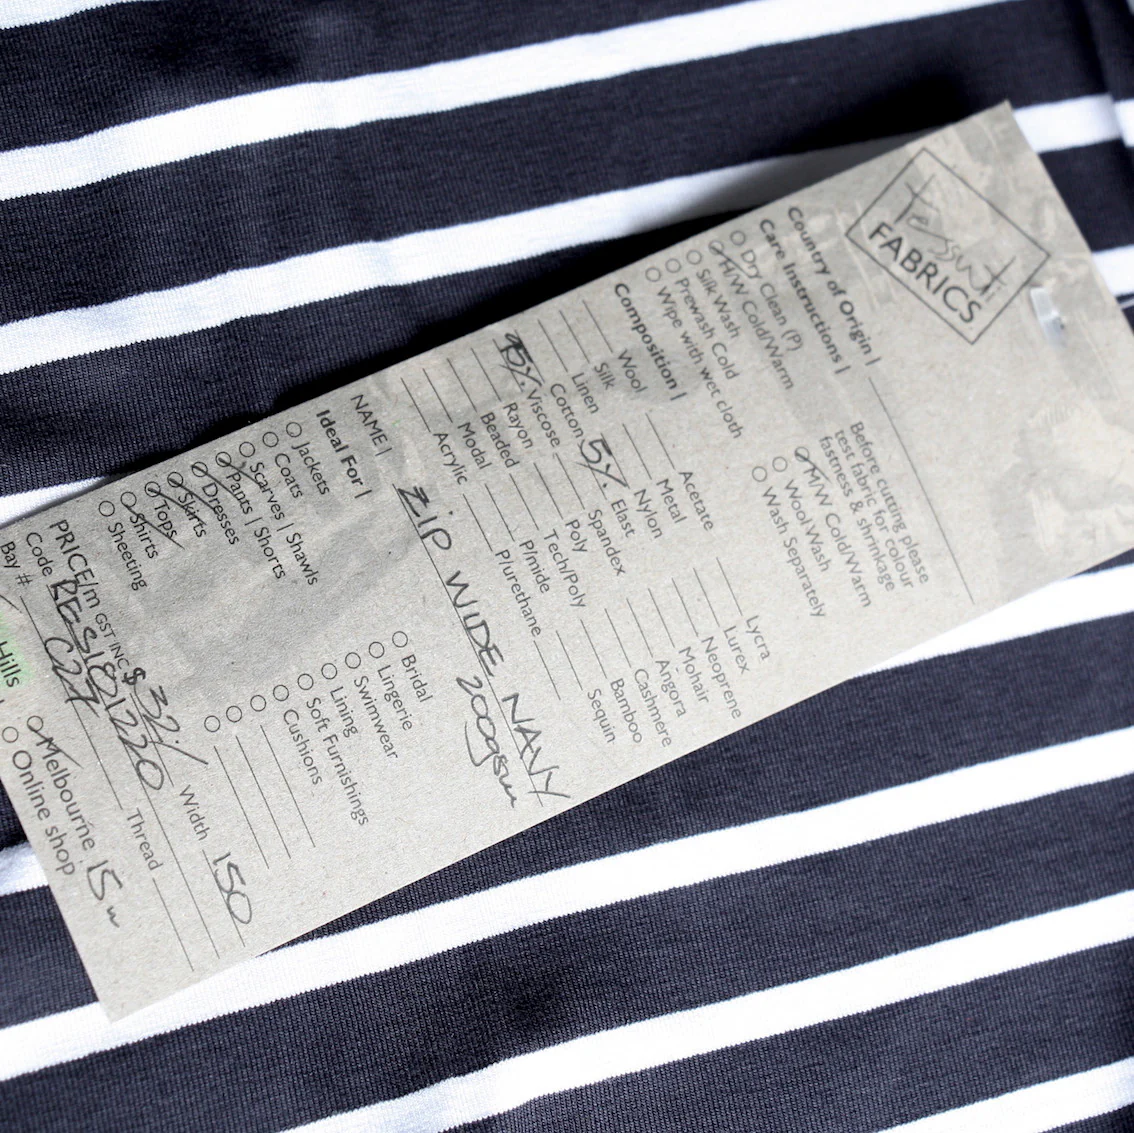 tessuti
FABRICS
Country of Origin |
Care Instructions |
Dry Clean (P)
H/W Cold/Warm
Silk Wash
Prewash Cold
Wipe with wet cloth
Before cutting please
test fabric for colour
fastness & shrinkage
M/W Cold/Warm
Wool Wash
Wash Separately
Composition |
Wool
Silk
Linen
Cotton
95% Viscose
Rayon
Beaded
Modal
Acrylic
Acetate
Metal
Nylon
5% Elast
Spandex
Poly
Tech/Poly
P/mide
P/urethane
Lycra
Lurex
Neoprene
Mohair
Angora
Cashmere
Bamboo
Sequin
NAME | ZIP WIDE NAVY
200gsm
Ideal For |
Jackets
Coats
Scarves | Shawls
Pants | Shorts
Dresses
Skirts
Tops
Shirts
Sheeting
Bridal
Lingerie
Swimwear
Lining
Soft Furnishings
Cushions
PRICE/m GST INC $ 32/ Width 150
Code
Thread
Bay #
Hills
Melbourne 15m
Online shop